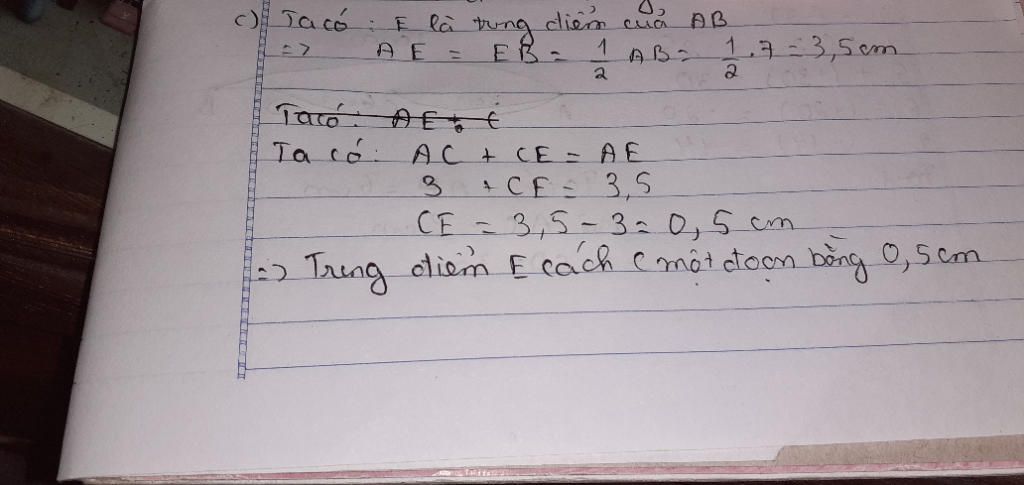 c) Ta có : E là trung điểm của AB
=> AE = EB = 1/2 AB = 1/2 . 7 = 3,5 cm
Ta có : AE + C
Ta có : AC + CE = AE
3 + CE = 3,5
CE = 3,5 - 3 = 0,5 cm
=> Trung điểm E cách C một đoạn bằng 0,5 cm